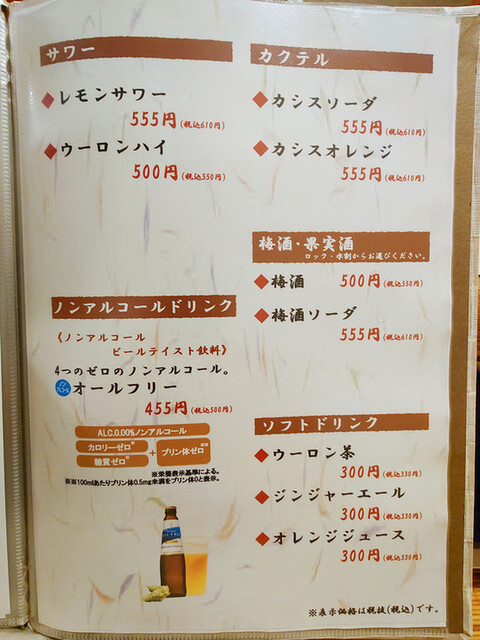 サワー
◆レモンサワー
555円(税込610円)
◆ウーロンハイ
500円(税込550円)
ノンアルコールドリンク
《ノンアルコール
ビールテイスト飲料》
4つのゼロのノンアルコール。
オールフリー
455円(税込500円)
ALC.0.00%ノンアルコール
カロリーゼロ※
糖質ゼロ※
+
プリン体ゼロ※※
※栄養表示基準による。
※※100mlあたりプリン体0.5mg未満をプリン体0と表示。
カクテル
◆カシスソーダ
555円(税込610円)
◆カシスオレンジ
555円(税込610円)
梅酒・果実酒
ロック・水割からお選びください。
◆梅酒 500円(税込550円)
◆梅酒ソーダ
555円(税込610円)
ソフトドリンク
◆ウーロン茶
300円(税込330円)
◆ジンジャーエール
300円(税込330円)
◆オレンジジュース
300円(税込330円)
※表示価格は税抜(税込)です。